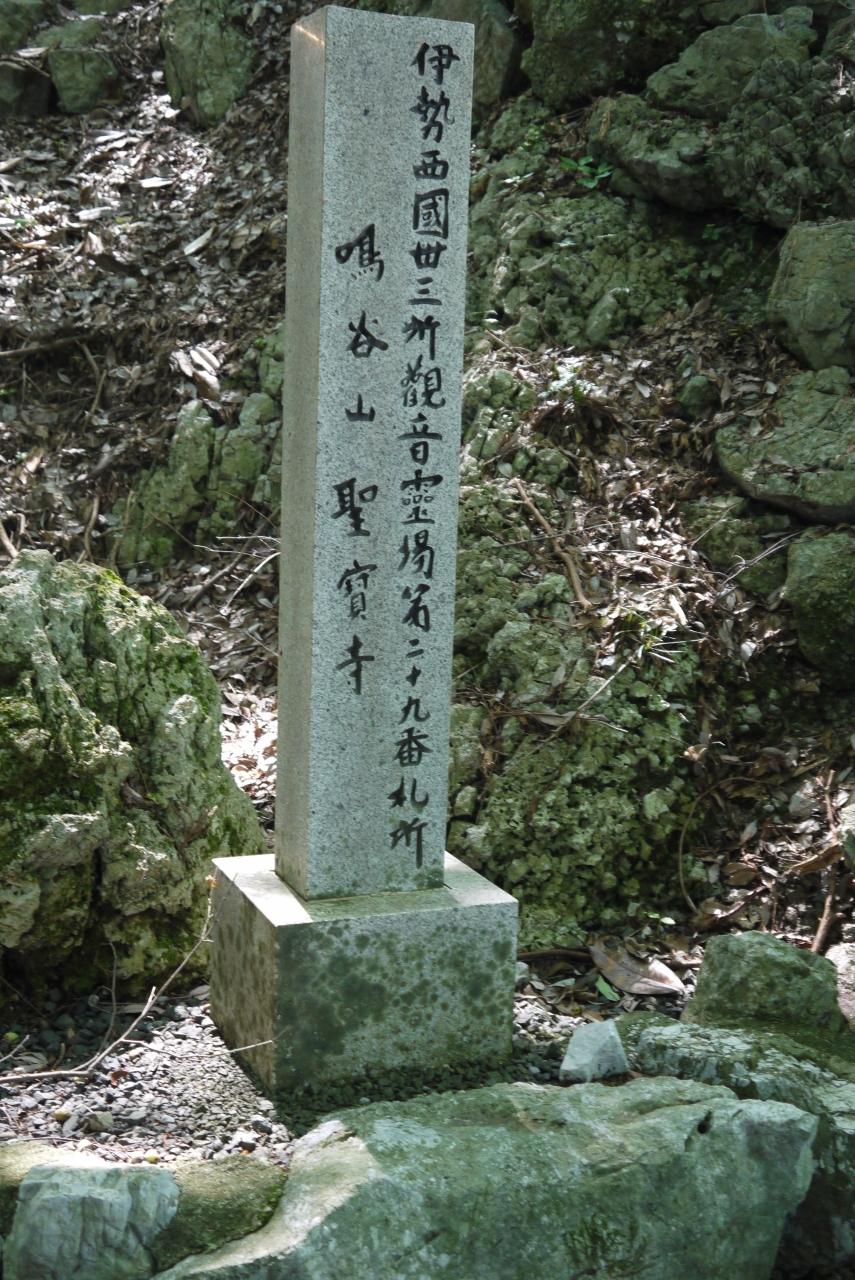 伊勢西國卅三所觀音靈場第二十九番札所
鳴谷山 聖寳寺